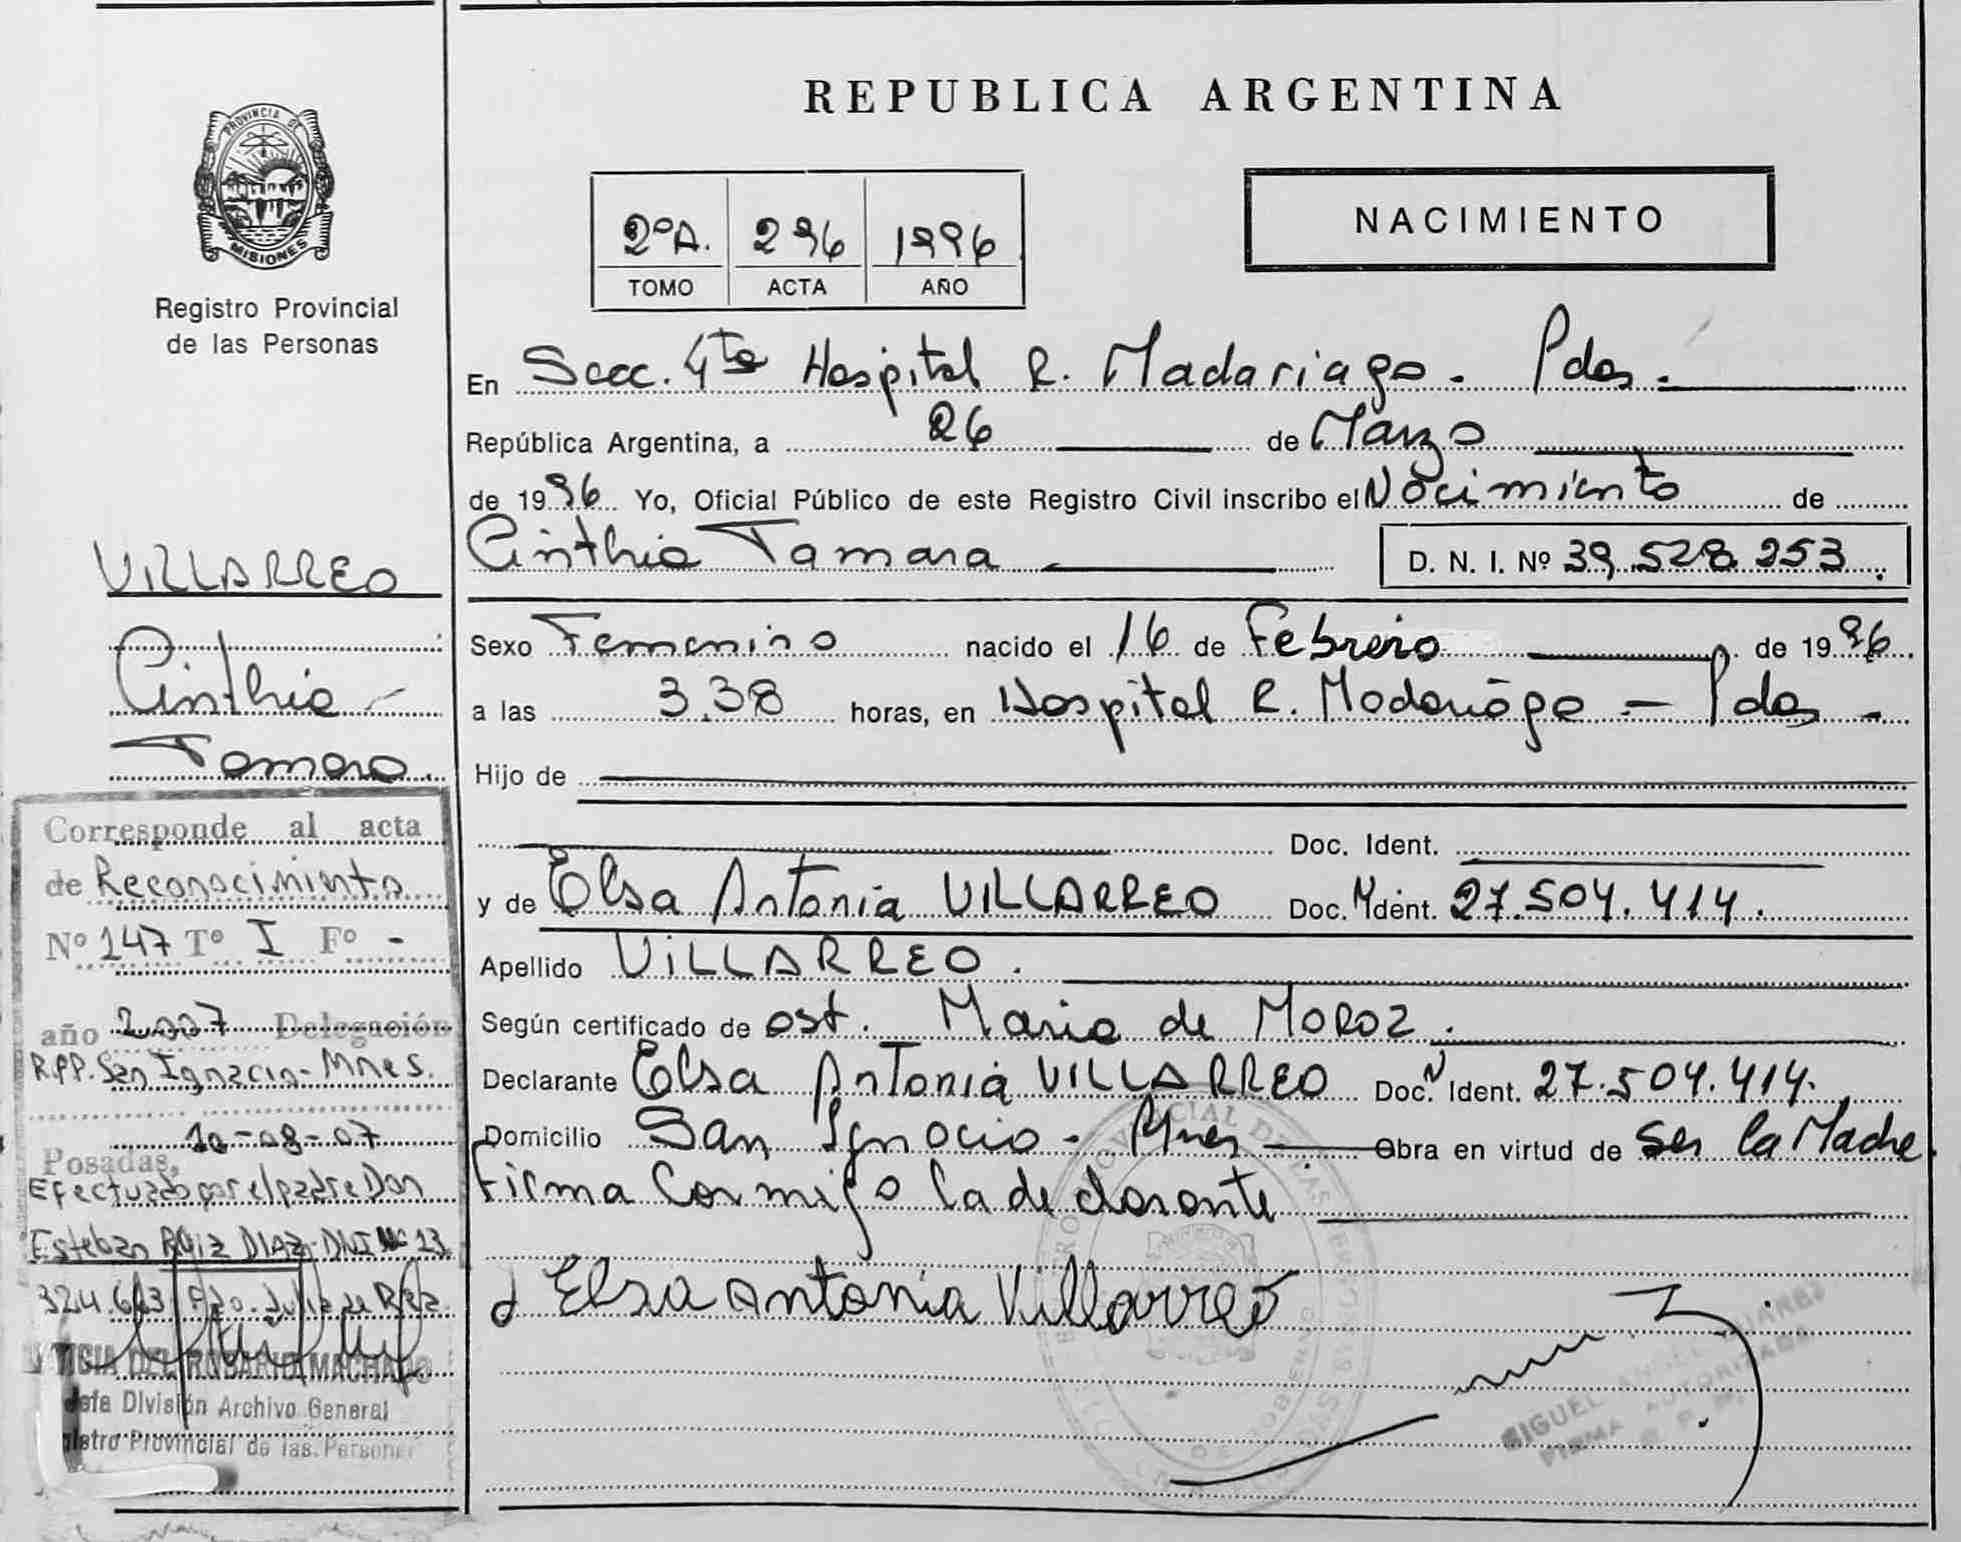 PROVINCIA DE
MISIONES
Registro Provincial
de las Personas
VILLARREO
Cinthia
Tamara.
Corresponde al acta
de Reconocimiento
Nº 147 Tº I Fº -
año 2.007 Delegación
R.P.P. San Ignacio-Mnes.
10-08-07
Posadas,
Efectuado por el padre Don
Esteban RUIZ DIAZ-DNI Nº 13.
DEL ROSARIO MACHADO
Jefa División Archivo General
Registro Provincial de las Personas
REPUBLICA ARGENTINA
2ºA. 296 1996
TOMO ACTA AÑO
NACIMIENTO
En Secc. 4ta Hospital R. Madariaga. Pdas.
República Argentina, a 26 de Marzo
de 1996 Yo, Oficial Público de este Registro Civil inscribo el Nacimiento de
Cinthia Tamara D. N. I. Nº 39.528.253.
Sexo Femenino nacido el 16 de Febrero de 1996.
a las 3.38 horas, en Hospital R. Madariaga - Pdas.
Hijo de
Doc. Ident.
y de Elsa Antonia VILLARREO Doc. Ident. 27.504.414.
Apellido VILLARREO.
Según certificado de ost. Maria de MOROZ.
Declarante Elsa Antonia VILLARREO Doc. Ident. 27.504.414.
Domicilio San Ignacio - Mnes Obra en virtud de ser la Madre
Firma Conmigo la declarante
Elsa Antonia Villarreo
FIRMA AUTORIZADA